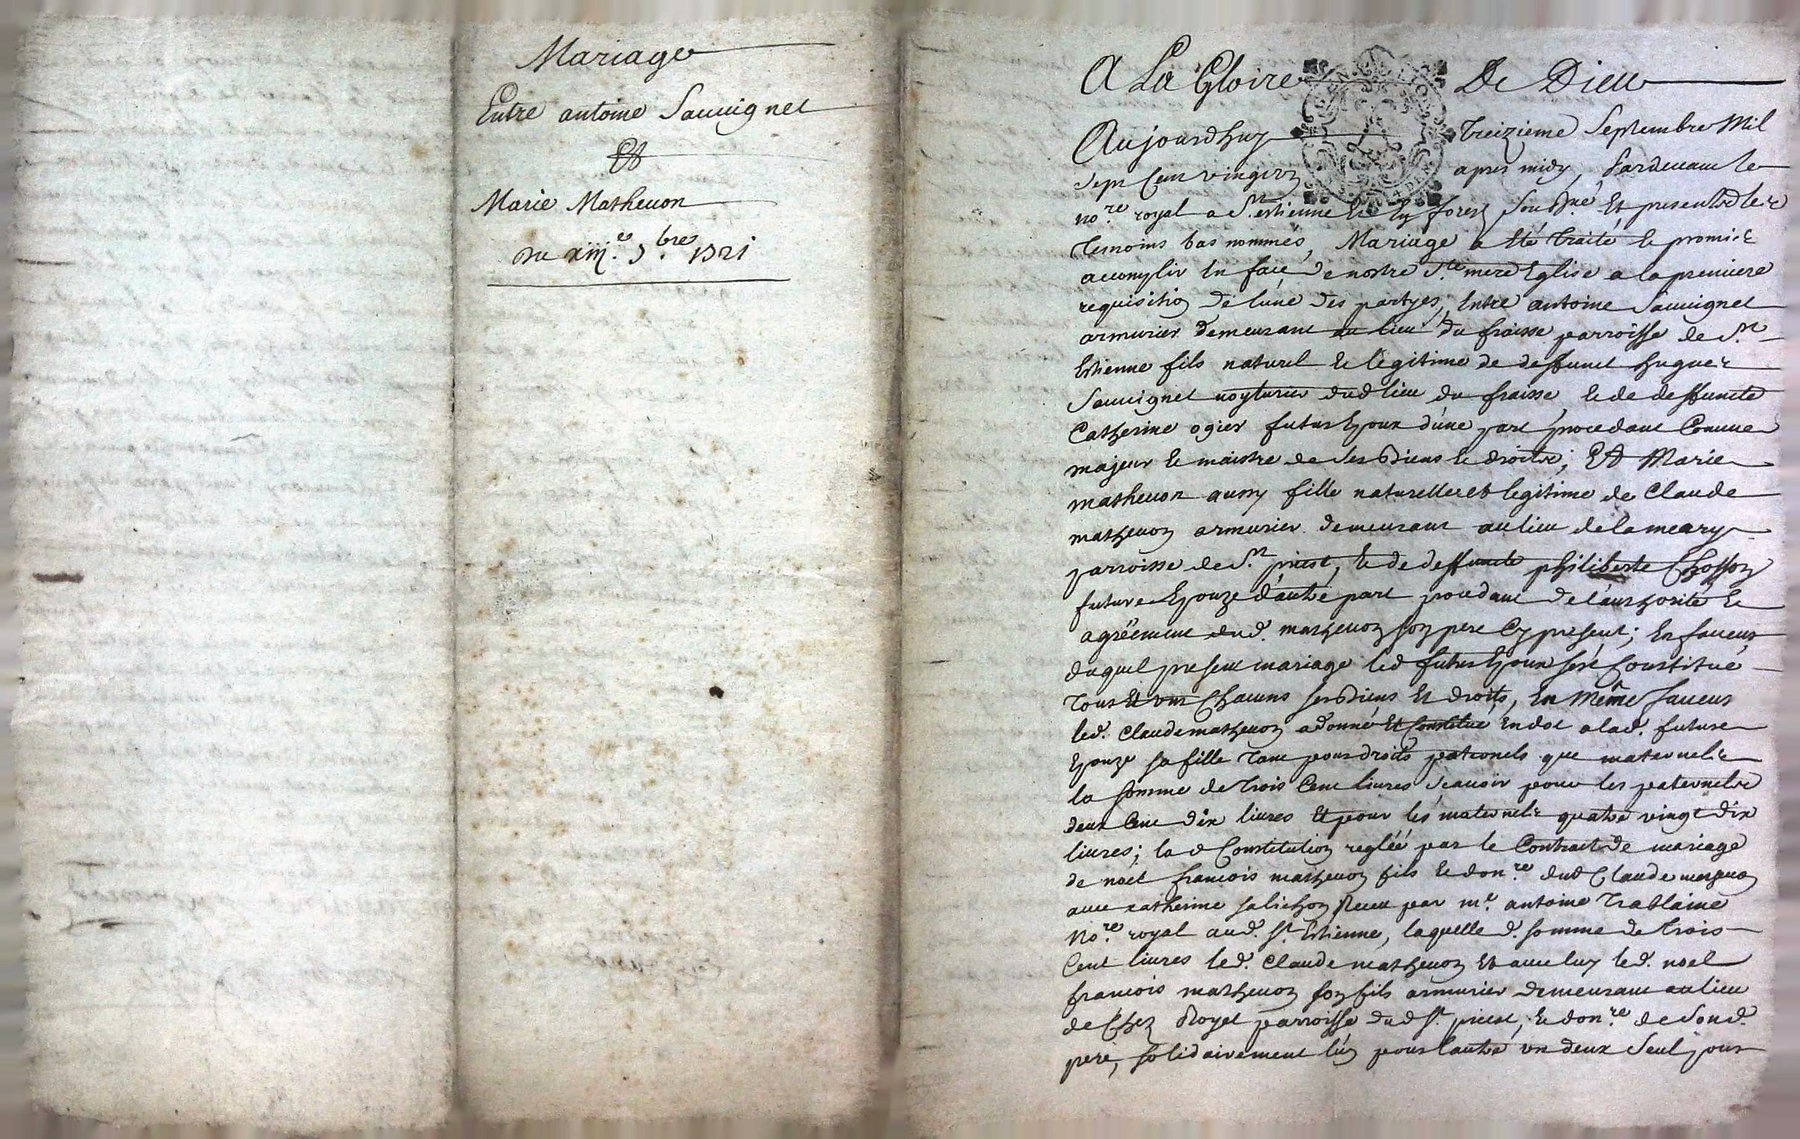 Mariage
Entre antoine Sauuignet
Et
Marie Matheuon
du xiij.e 7.bre 1721
A La Gloire De Dieu
Aujourdhuy Treizieme Septembre Mil
sept Cent vingt vn apres midy, Pardeuant le
no.re royal a St. estienne En forest sousné Et presents les
Tesmoins bas nommés, Mariage a eté traité le promis
accomplir En face de nostre Ste mere Eglise a la premiere
requisition de l'une des partyes, Entre antoine Sauuignet
armurier demeurant au lieu du fraisse parroisse de St.
Estienne fils naturel le legitime de deffunct hugues
Sauuignet dud lieu du fraisse, le de deffuncte
Catherine ogier futur Epoux d'une part procedant Comme
majeur le maistre de ses Biens le droits; Et Marie
matheuon aussy fille naturelle et legitime de Claude
matheuon armurier demeurant au lieu de la meary
parroisse de St. priest, le de deffuncte philiberte Chosson
future Epouze d'autre part procedant de l'authorité le
agréement dud. matheuon son pere Cy present; En faueur
duquel present mariage led futur Epoux sest Constitué
Tous Et vns Chacuns ses Biens Et droits, En même faueur
led. Claude matheuon a donné Et Constitué En dot a lad. future
Epouze sa fille Tant pour droits paternels que maternels
la somme de trois Cent liures scauoir pour les paternels
deux Cent dix liures Et pour les maternels quatre vingt dix
liures; la d Constitution reglée par le Contract de mariage
de noel francois matheuon fils le don.re dud Claude matheuon
auec Catherine salichon Receu par me. antoine Trablaine
No.re royal aud. St. Estienne, laquelle d. somme de trois
Cent liures led. Claude matheuon Et auec luy led. noel
francois matheuon son fils armurier demeurant au lieu
de Chez Royet parroisse dud St. priest, le don.re de sond.
pere, solidairement l'un pour l'autre vn deux seul pour